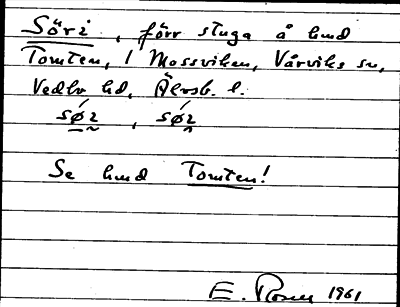 Söri, förr stuga å hmd
Tomten, 1 Mossviken, Vårviks sn,
Vedbo hd, Älvsb. l.
sǿ2, sǿ2
Se hmd Tomten!
E. Rosen 1961